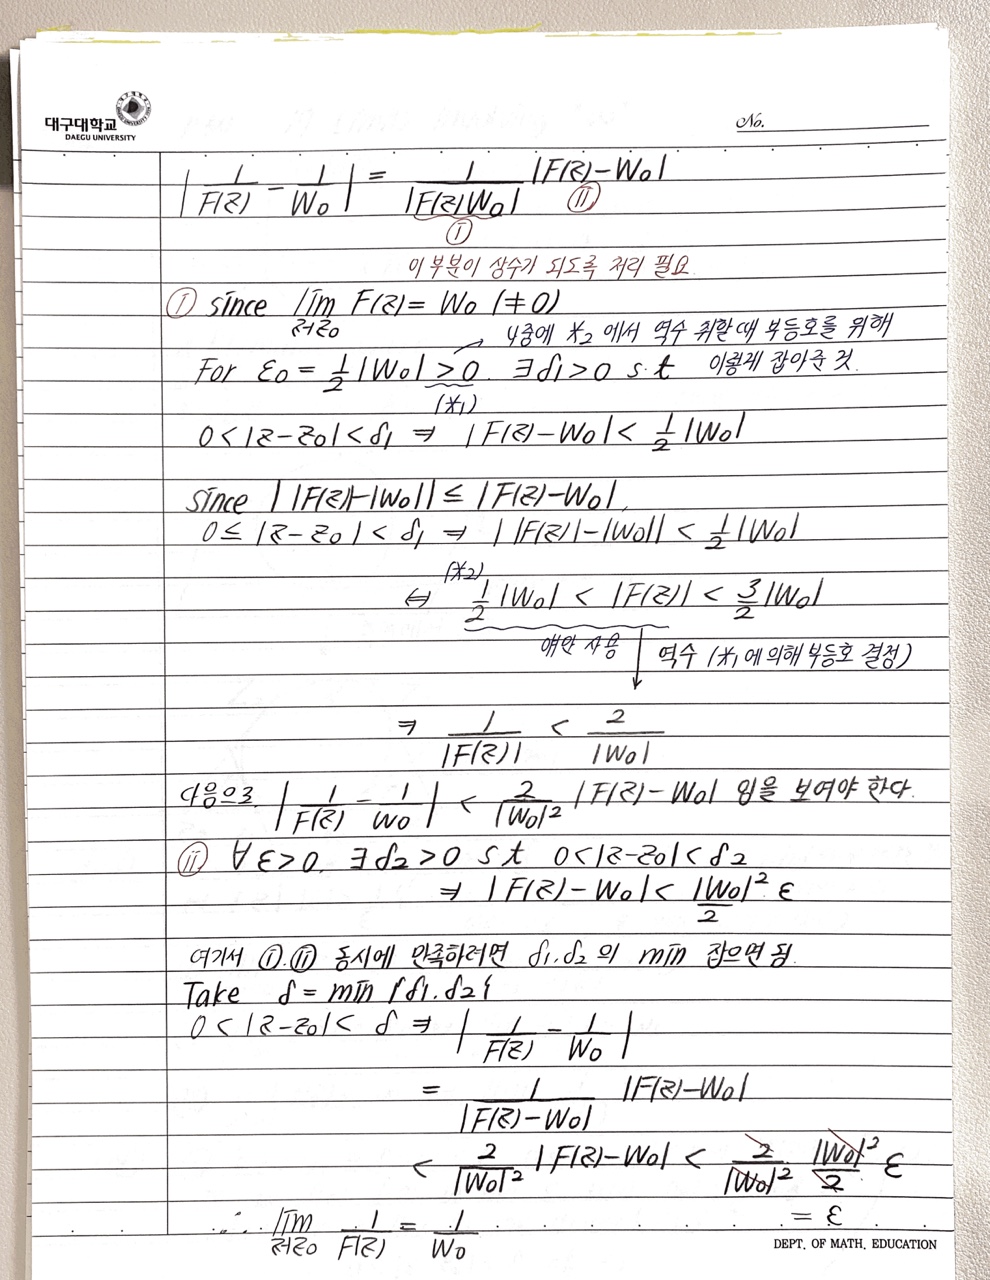 대구대학교
DAEGU UNIVERSITY
No.
| 1/F(z) - 1/W₀ | = 1/|F(z)W₀| |F(z)-W₀|
ⓘ ⓘⓘ
이 부분이 상수가 되도록 처리 필요.
ⓘ since lim_{z→z₀} F(z) = W₀ (≠0)
나중에 *₂ 에서 역수 취할때 부등호를 위해
이렇게 잡아준 것.
For ε₀ = 1/2 |W₀| > 0. ∃δ₁>0 s.t
(*₁)
0<|z-z₀|<δ₁ ⇒ |F(z)-W₀| < 1/2 |W₀|
since ||F(z)|-|W₀|| ≤ |F(z)-W₀|,
0≤|z-z₀|<δ₁ ⇒ ||F(z)|-|W₀|| < 1/2 |W₀|
(*₂)
⇔ 1/2 |W₀| < |F(z)| < 3/2 |W₀|
얘만 사용 ↓ 역수 (*₁에 의해 부등호 결정)
⇒ 1/|F(z)| < 2/|W₀|
다음으로, | 1/F(z) - 1/W₀ | < 2/|W₀|² |F(z)-W₀| 임을 보여야 한다.
ⓘⓘ ∀ε>0. ∃δ₂>0 s t 0<|z-z₀|<δ₂
⇒ |F(z)-W₀| < |W₀|²/2 ε
여기서 ⓘ.ⓘⓘ 동시에 만족하려면 δ₁.δ₂의 min 잡으면 됨.
Take δ = min {δ₁.δ₂}
0<|z-z₀|<δ ⇒ | 1/F(z) - 1/W₀ |
= 1/|F(z)-W₀| |F(z)-W₀|
< 2/|W₀|² |F(z)-W₀| < 2/|W₀|² |W₀|²/2 ε
= ε
∴ lim_{z→z₀} 1/F(z) = 1/W₀
DEPT. OF MATH. EDUCATION